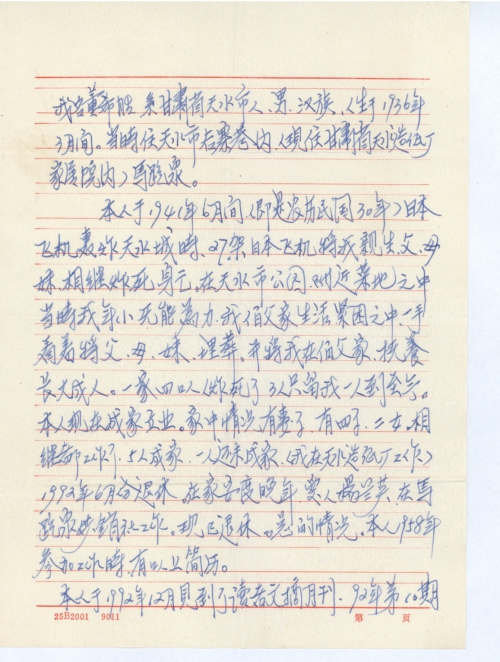 我名董 胜 系甘肃省天水市人、男、汉族、人生于1936年
3月间。当時住天水市 巷内、(现住甘肃省天水造纸厂
家属院内)馬跑泉。
本人于1941年6月间(即是农历民国30年)日本
飞机轰炸天水城時、27架日本飞机将我親生父、母
妹、相继炸死身亡。在天水市公园、附近墓地之中
当時我年小无能為力、我伯父家生活累困之中一手
看着将父、母、妹、埋葬。并将我在伯父家、扶養
長大成人。一家四口人(炸死了3人只留我一人到至今。
本人现在成家立业。家中情况、有妻子、有四子、二女、相
继都工作了、5人成家、一人还未成家、(我在天水造纸厂工作)
1992年6月份退休、在家吾度晚年 妻人 兰英、在馬
跑泉供销社工作。现已退休。总的情况。本人1958年
参加工作時、有以上简历。
本人于1992年12月見到了读者文摘月刊、92年第10期
25B2001 9011 第 頁